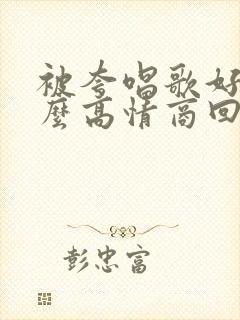 被夸唱歌好
麼高情商回
彭忠富